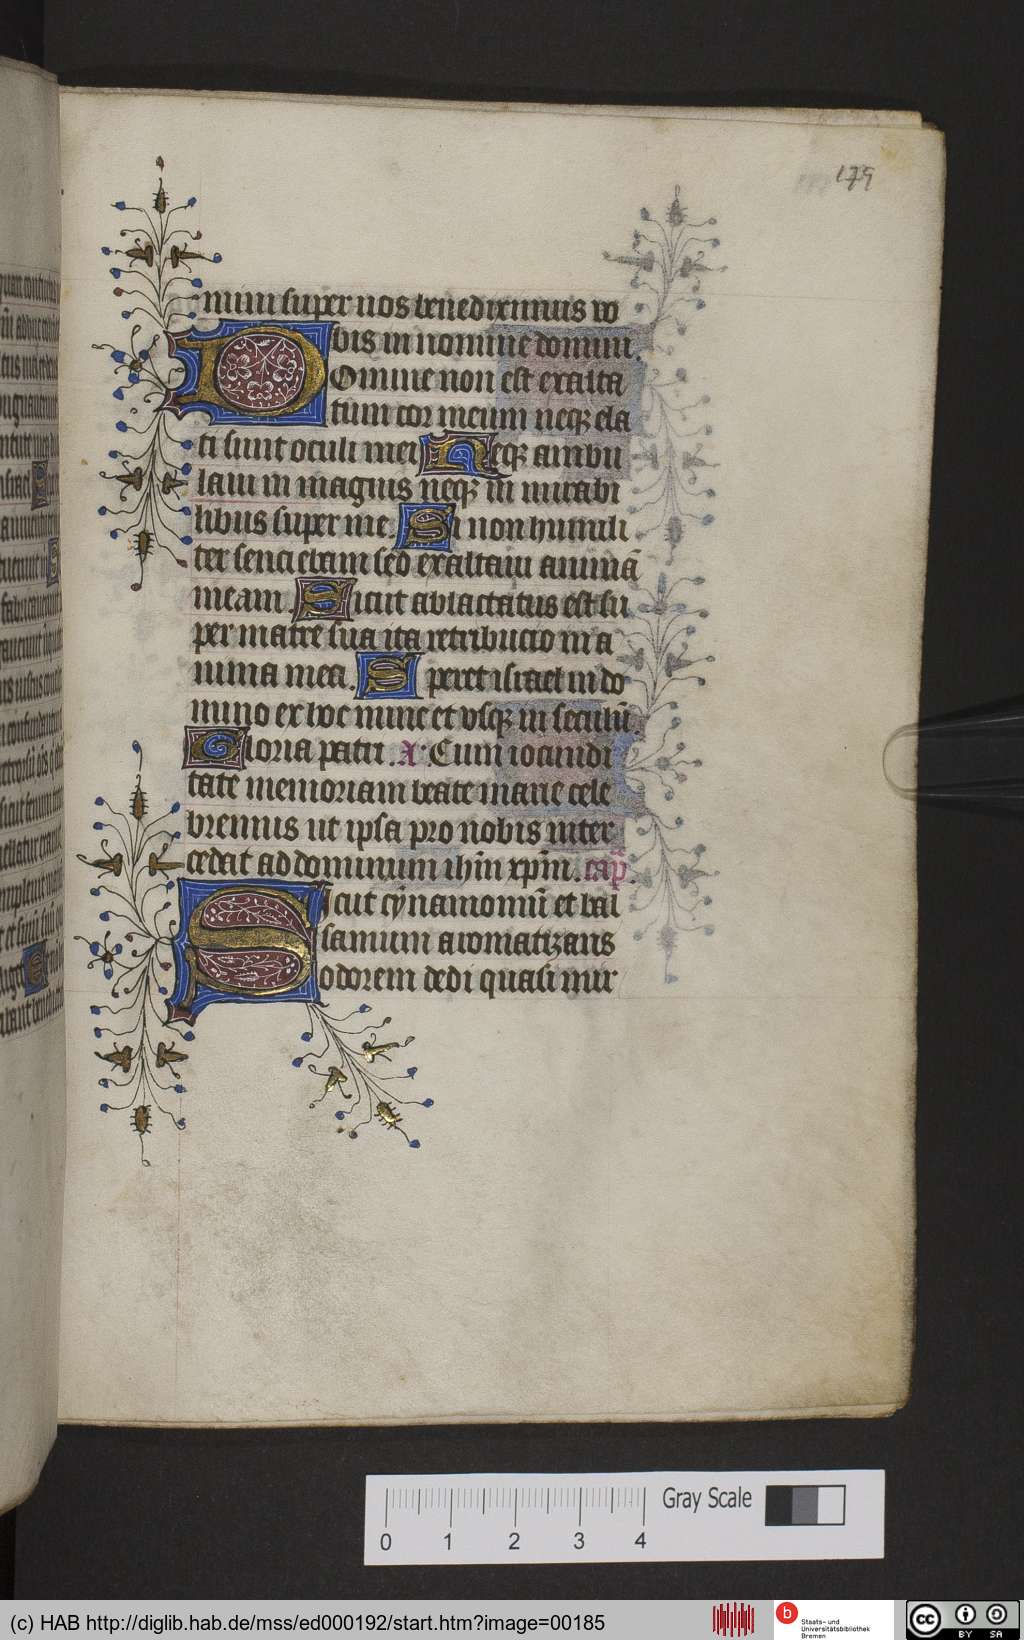 179
mini super nos benediximus vo
bis in nomine domini.
Domine non est exalta
tum cor meum neqꝫ ela
ti sunt oculi mei Neqꝫ ambu
laui in magnis neqꝫ in mirabi
libus super me. Si non humili
ter senciebam sed exaltaui animā
meam. Sicut ablactatus est su
per matrē sua ita retribucio in a
nima mea. Speret israel in do
mino ex hoc nunc et vsqꝫ in seculū.
Gloria patri. A. Cum iocundi
tate memoriam beate marie cele
bremus ut ipsa pro nobis inter
cedat ad dominum ihm̄ xpm̄. cap̄.
Sicut cynamomū et bal
samum aromatizans
odorem dedi quasi mir
0 1 2 3 4 Gray Scale
(c) HAB http://diglib.hab.de/mss/ed000192/start.htm?image=00185
Staats- und
Universitätsbibliothek
Bremen
CC BY SA